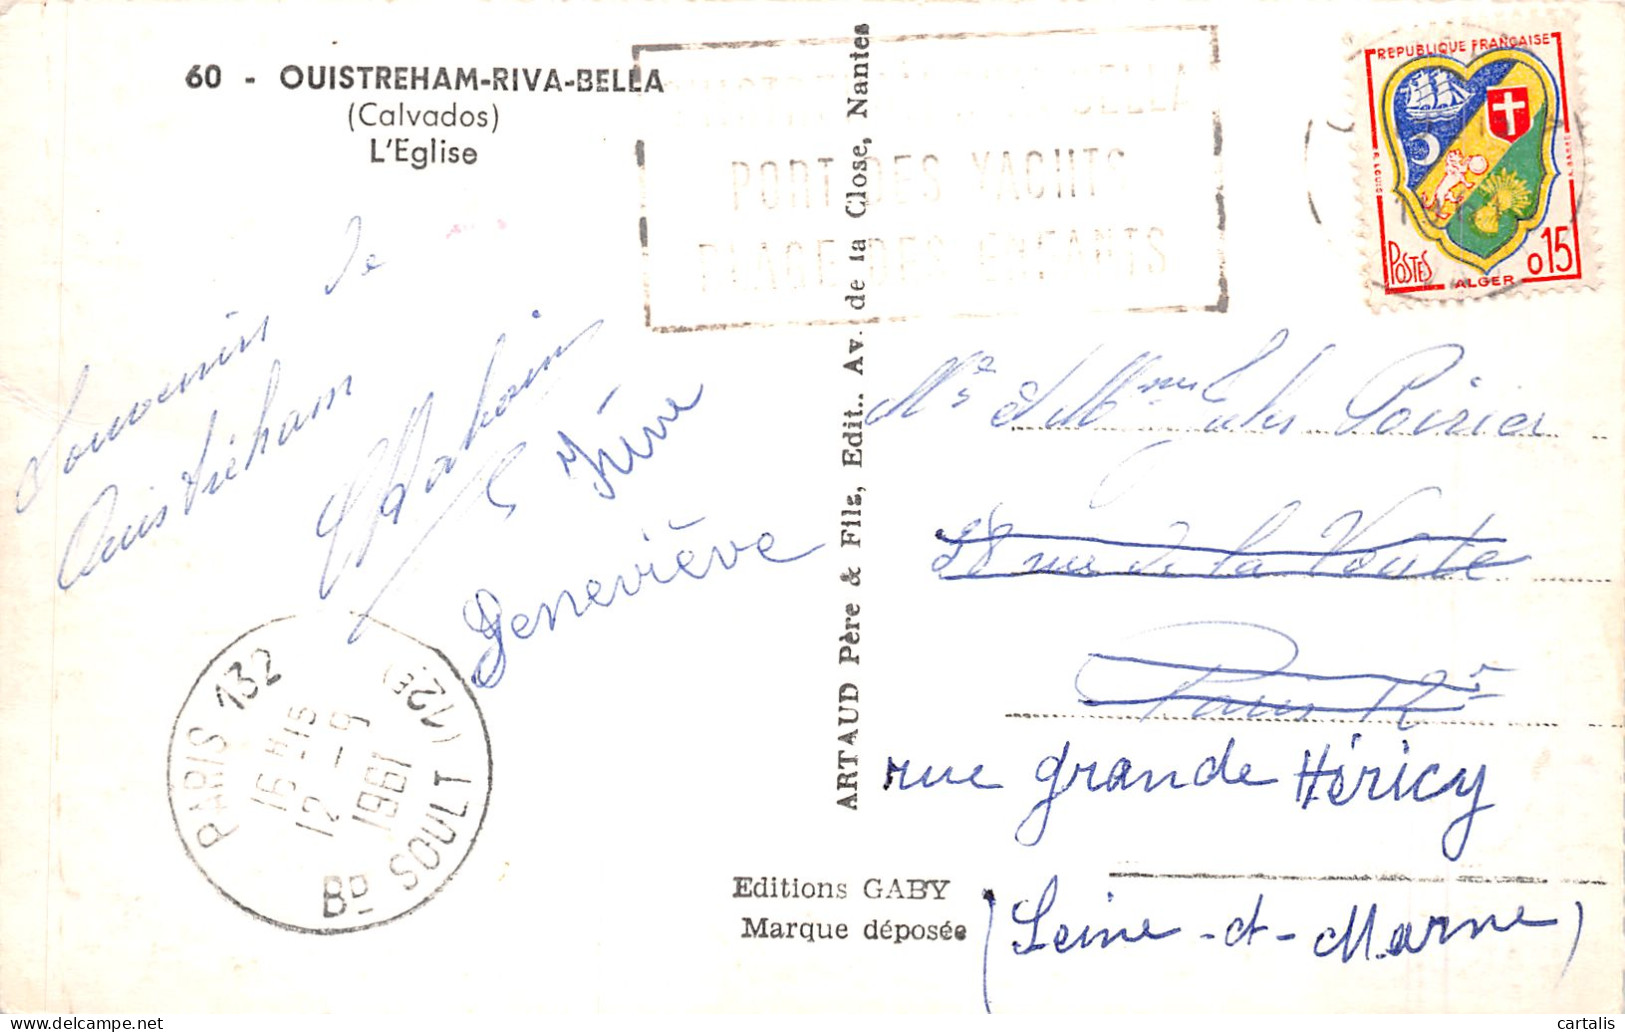 60 - OUISTREHAM-RIVA-BELLA
(Calvados)
L'Eglise
PORT DES YACHTS
PLAGE DES ENFANTS
REPUBLIQUE FRANÇAISE
POSTES
ALGER
0,15
Souvenirs de
Ouistreham
Geneviève
PARIS 132
16 H-15
12 - 9
1961
Bd SOULT (12E)
ARTAUD Père & Fils, Edit., Av. de la Close, Nantes
Mr et Mme Jules Poirier
28 rue de la Voute
Paris 12e
rue grande Héricy
(Seine-et-Marne)
Editions GABY
Marque déposée
cartalis